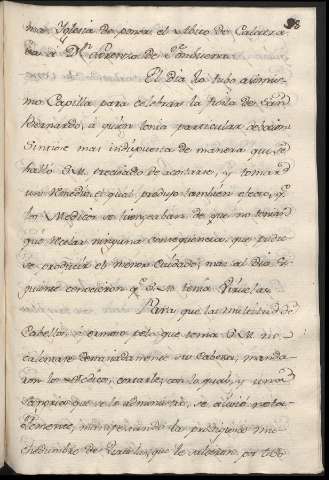 ma Yglesia de poner el Abito de Calatra-
va a Dn Lorenzo de
El dia 20 tubo asimis-
mo Capilla para celebrar la fiesta de San
Bernardo, a quien tenia particular debocion.
Sintiose mas indispuesta de manera que se
hallo S.M. precisada de acostarse, y tomar
un remedio el qual produjo tambien efecto, qe
los Medicos se lisonjeaban de que no tenian
que recelar ninguna consequencia que pudie-
se producir el menor cuidado; mas al dia si-
guiente conocieron qe S.M. tenia Viruelas.
Para que la multitud de
Cabellos, y ermoso pelo que tenia S.M. no
calentase demasiadamente su Cabeza, manda-
ron los Medicos cortarle, con lo qual, y una
sangria que se le administró, se alivió nota-
blemente, manifestando la prodigiosa mu-
chedumbre de Viruelas, que le salieron por todo